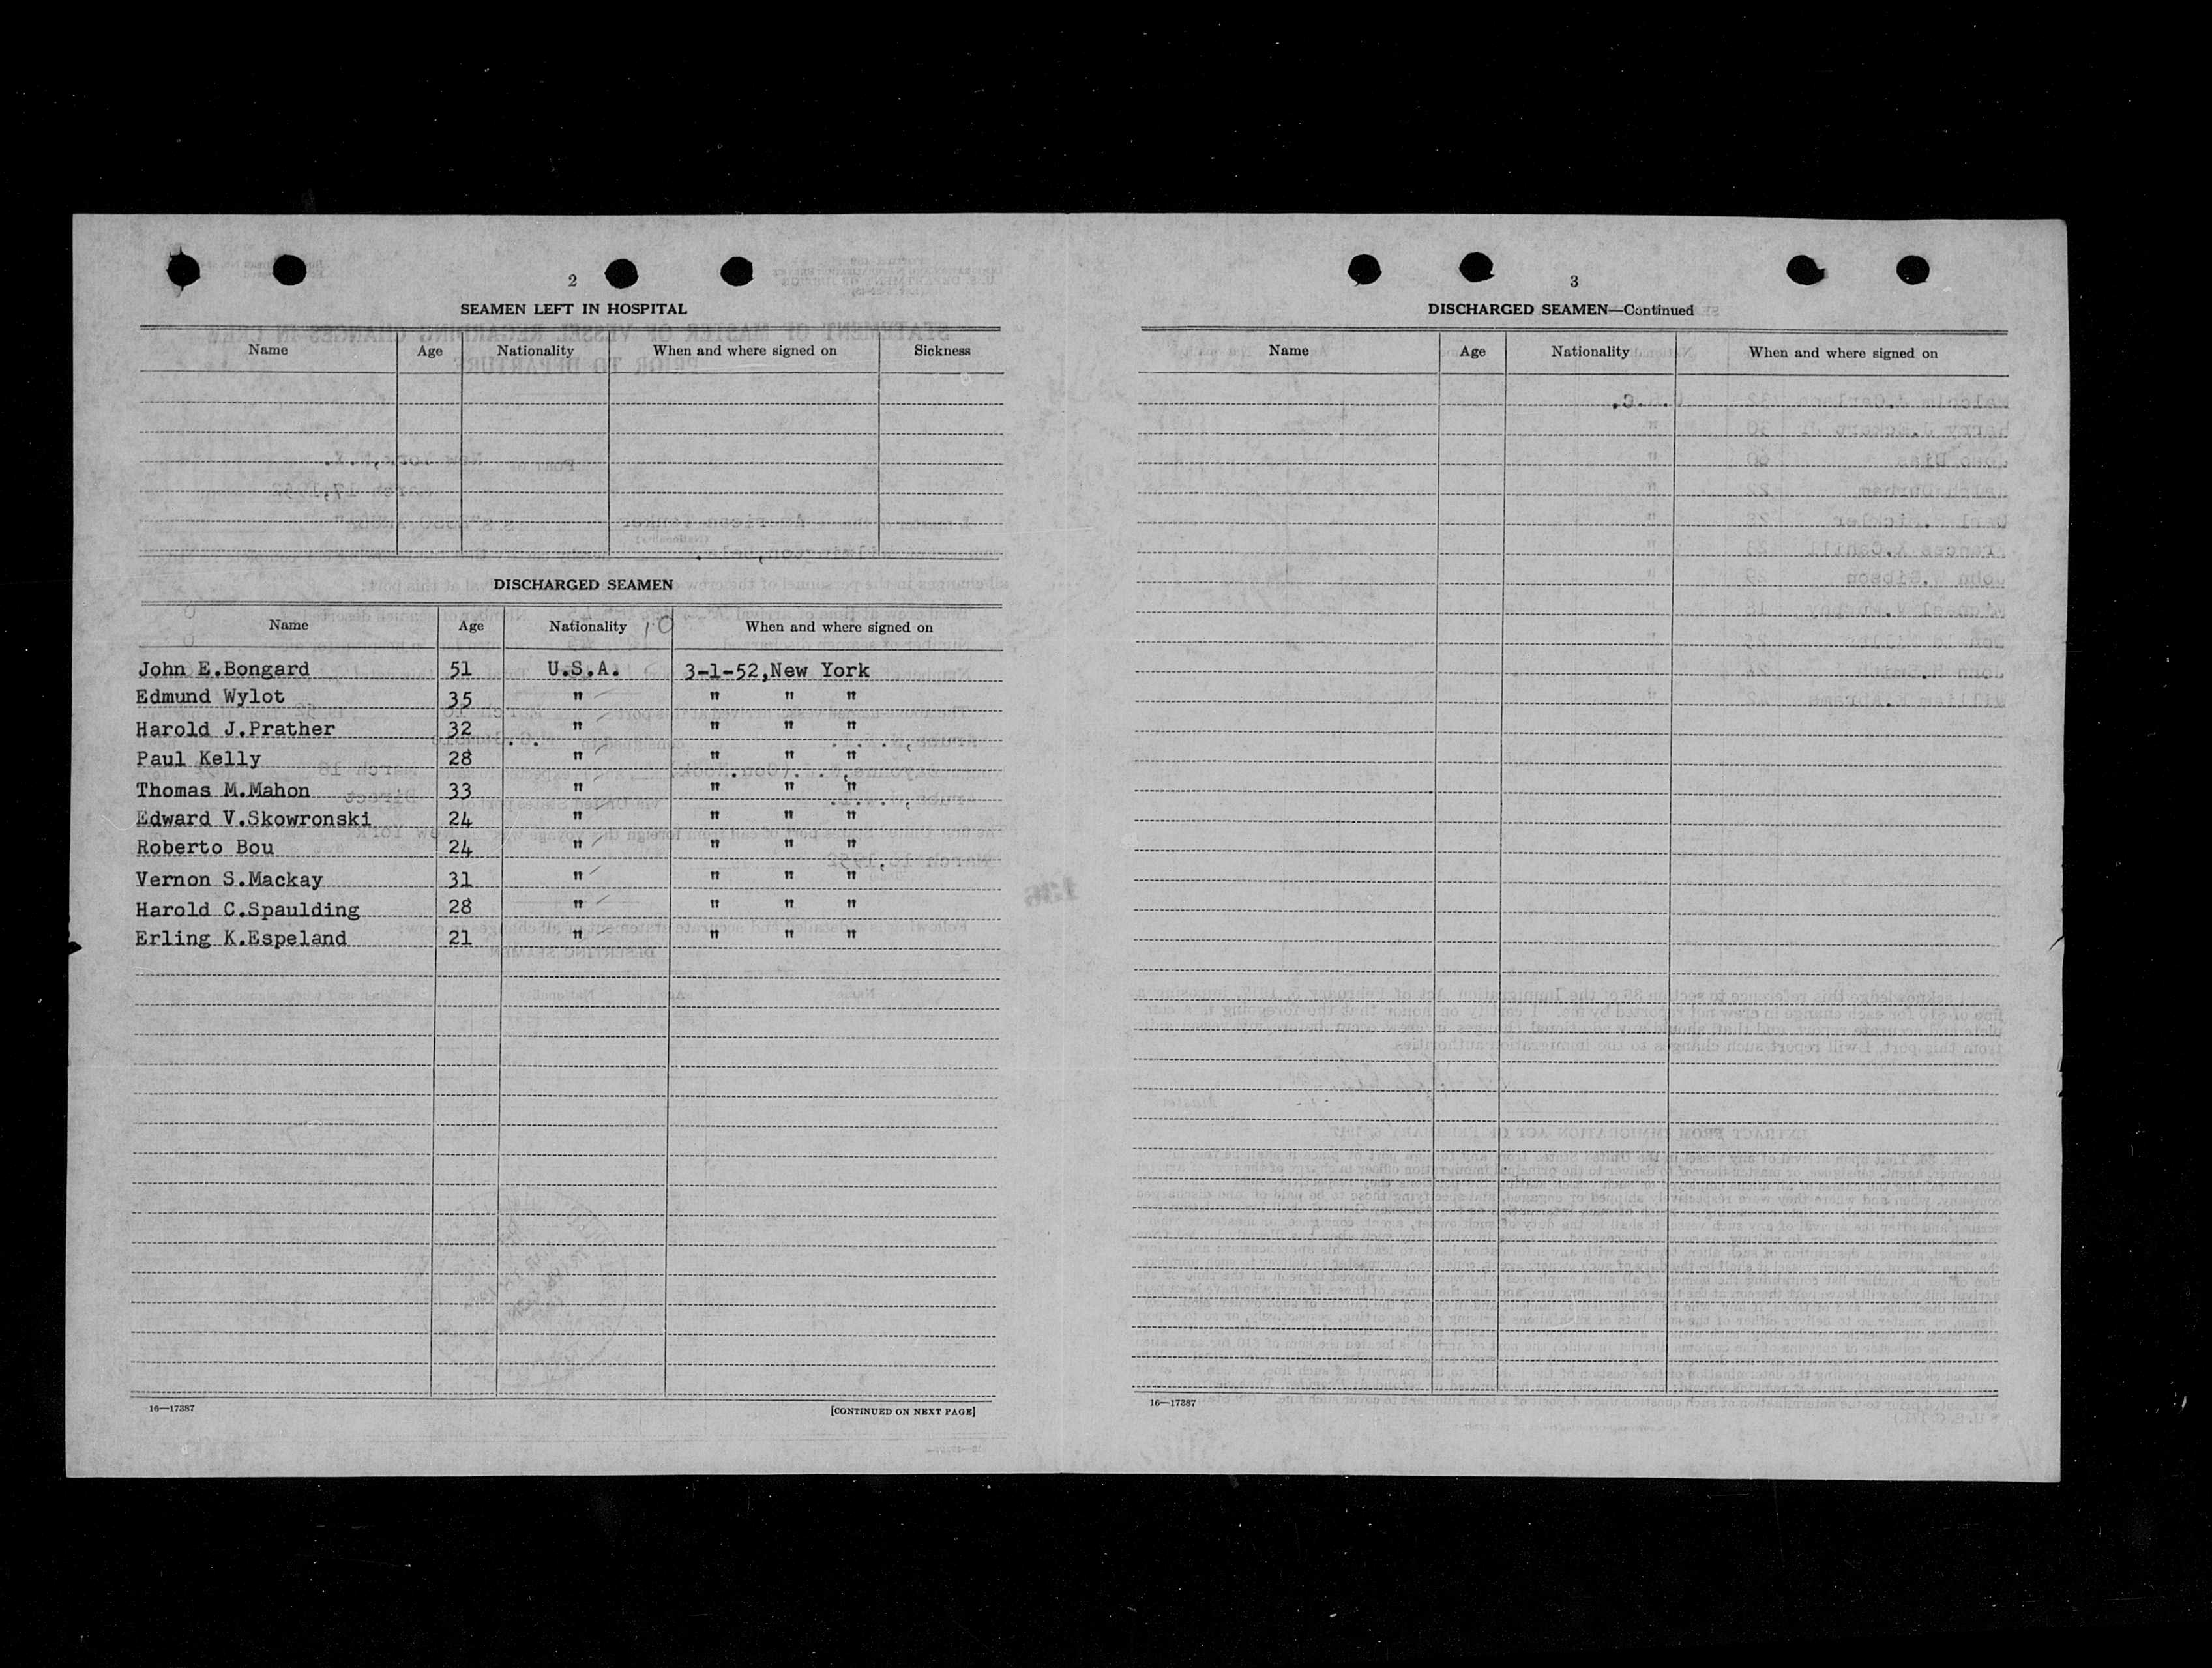 2
SEAMEN LEFT IN HOSPITAL
Name Age Nationality When and where signed on Sickness
DISCHARGED SEAMEN
Name Age Nationality 10 When and where signed on
John E.Bongard 51 U.S.A. 3-1-52,New York
Edmund Wylot 35 " " " "
Harold J.Prather 32 " " " "
Paul Kelly 28 " " " "
Thomas M.Mahon 33 " " " "
Edward V.Skowronski 24 " " " "
Roberto Bou 24 " " " "
Vernon S.Mackay 31 " " " "
Harold C.Spaulding 28 " " " "
Erling K.Espeland 21 " " " "
16—17387 [CONTINUED ON NEXT PAGE]
3
DISCHARGED SEAMEN—Continued
Name Age Nationality When and where signed on
16—17387